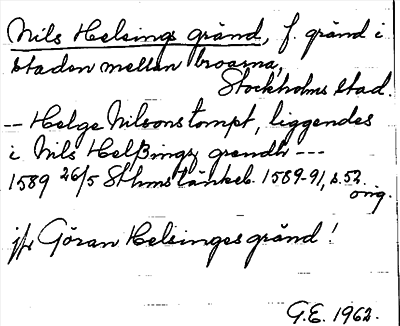 Nils Helsings gränd, f. gränd i
staden mellan broarna,
Stockholms stad.
-- Helge Nilsons tompt, liggendes
i Nils Helßingz grendh ---
1589 26/5 Sthms tänkeb. 1589-91, s. 52.
orig.
jfr Göran Helsinges gränd!
G.E. 1962.